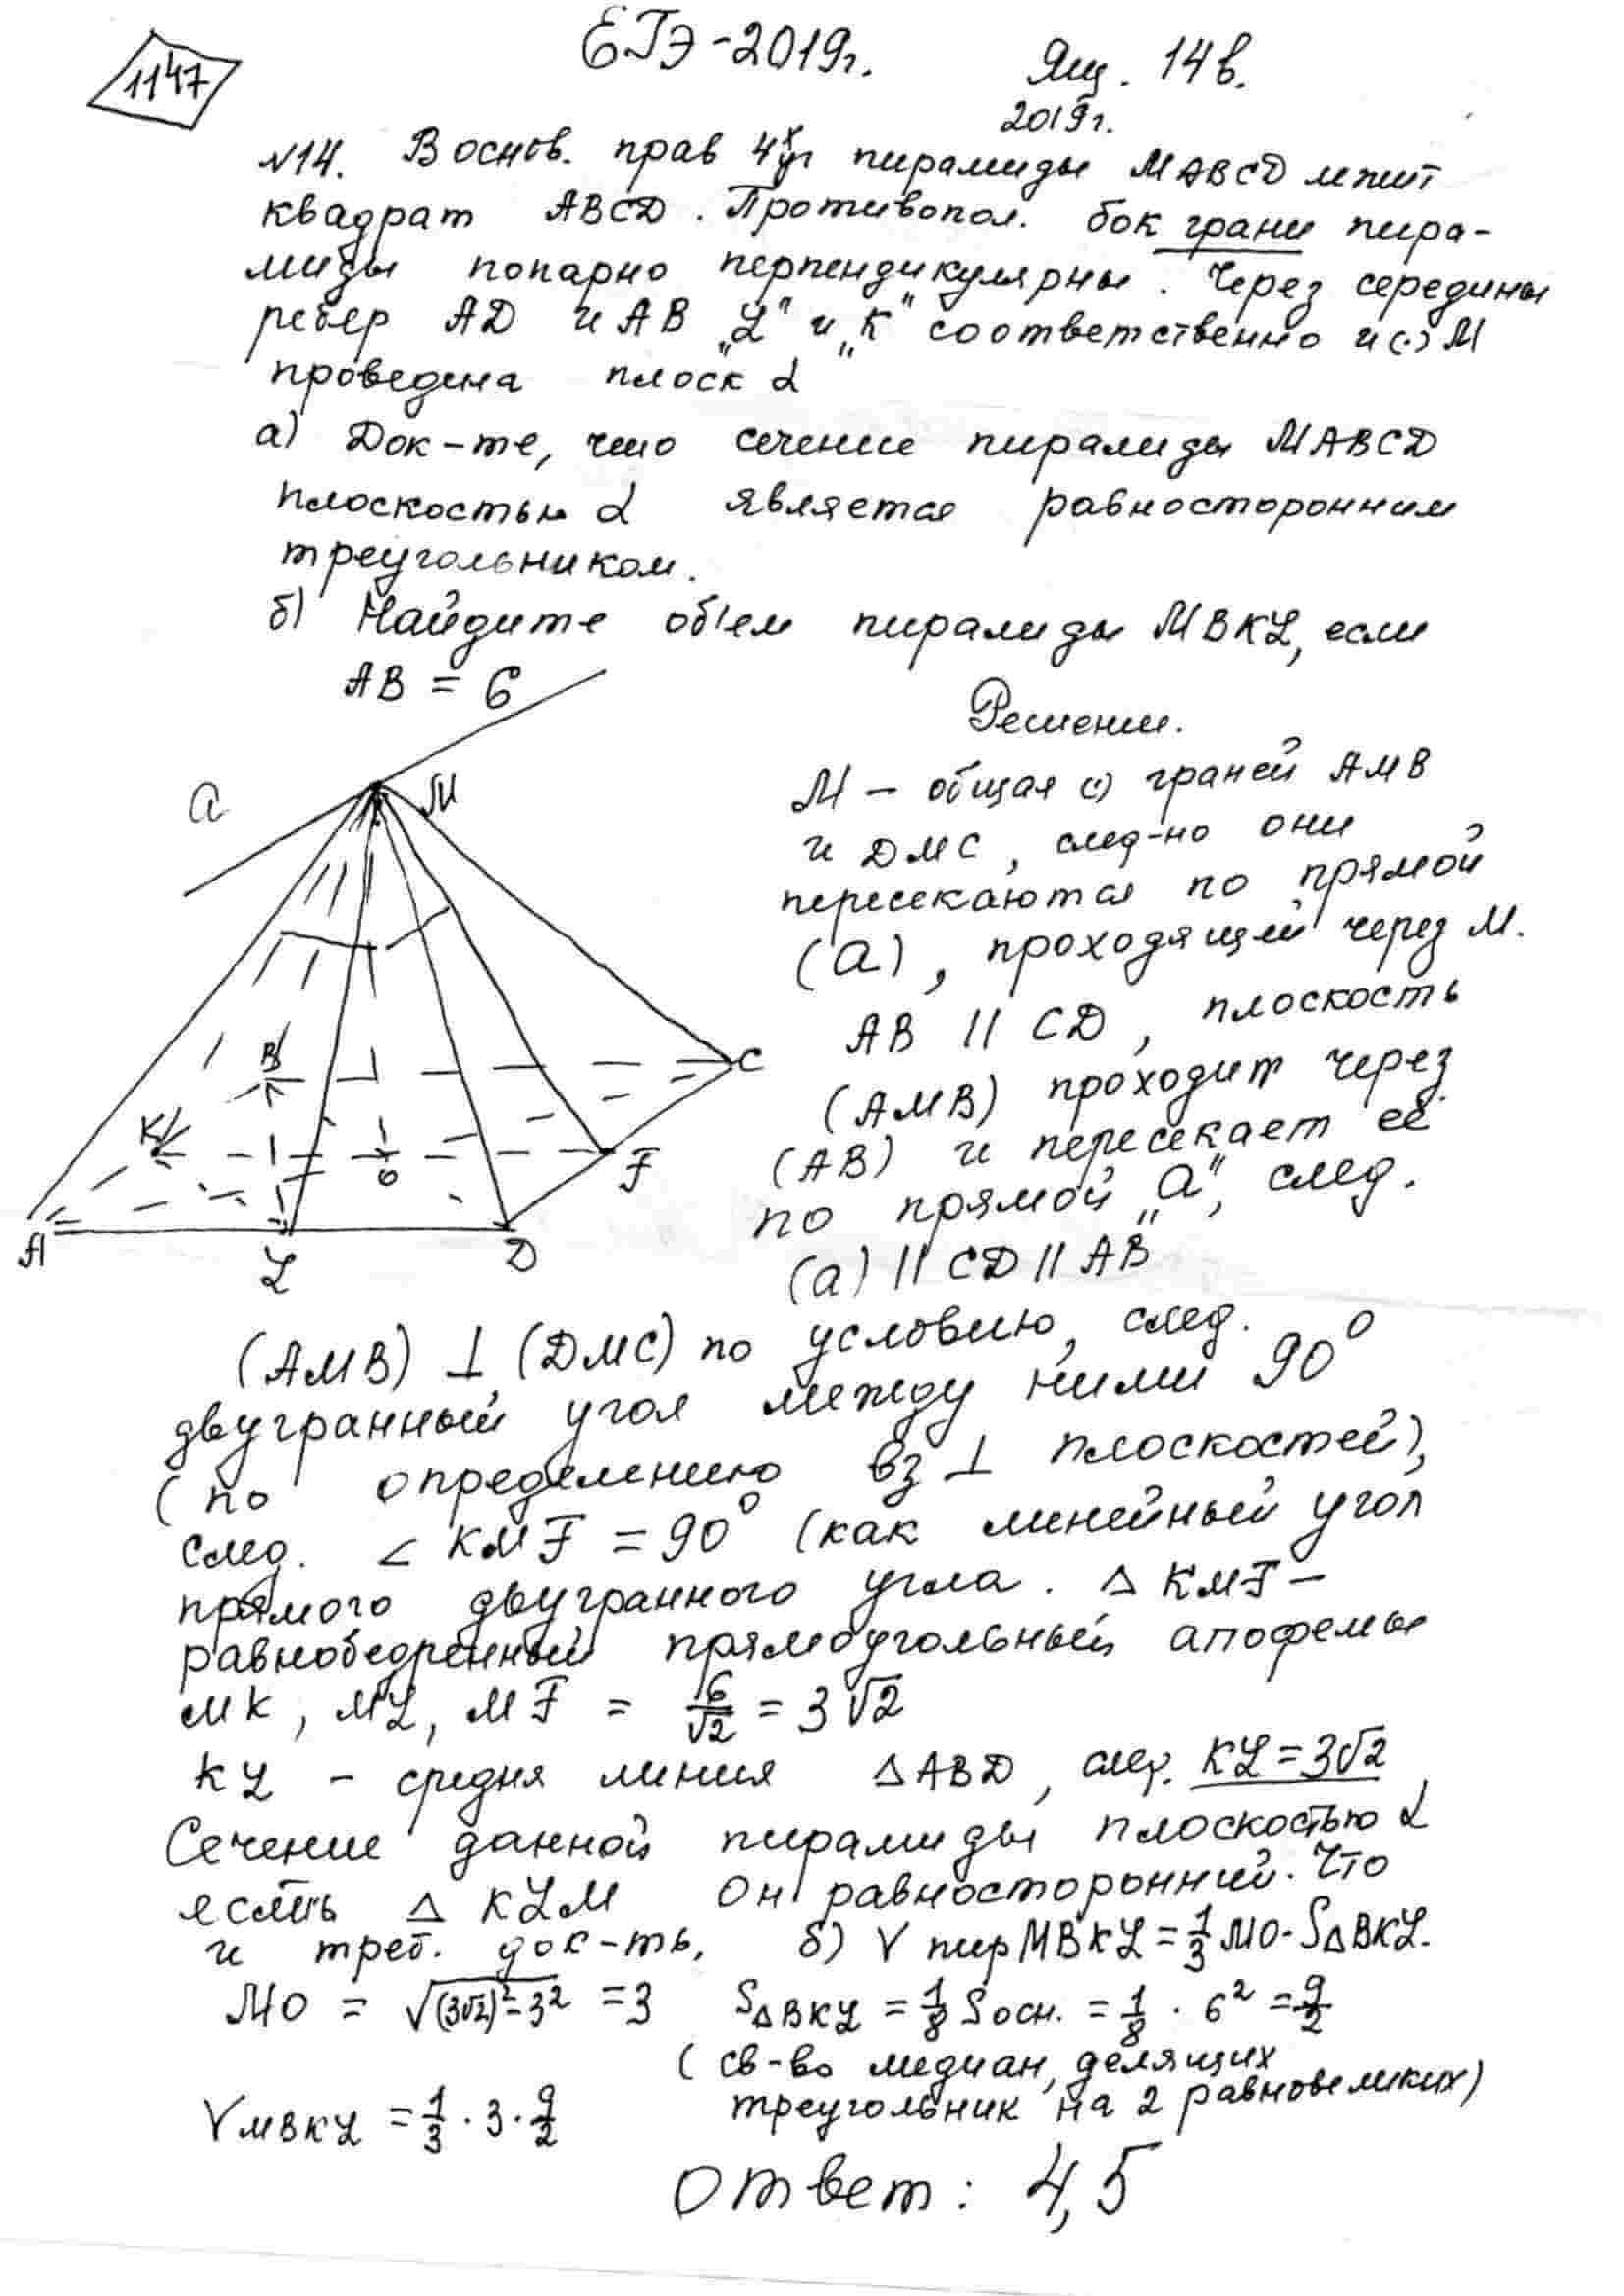 1147
ЕГЭ-2019г.
Ящ. 14в.
2019г.
№14. В основ. прав 4х уг пирамиды MABCD лежит
квадрат ABCD. Противопол. бок грани пира-
миды попарно перпендикулярны. Через середины
ребер AD и AB „L" и „K" соответственно и (·) M
проведена плоск α
а) Док-те, что сечение пирамиды MABCD
плоскостью α является равносторонним
треугольником.
б) Найдите объем пирамиды MBKL, если
AB = 6
Решение.
M – общая (·) граней AMB
и DMC, след-но они
пересекаются по прямой
(a), проходящей через M.
AB || CD, плоскость
(AMB) проходит через
(AB) и пересекает её
по прямой „a", след.
(a) || CD || AB
a
M
B
C
K
O
F
A
L
D
(AMB) ⊥ (DMC) по условию, след.
двугранный угол между ними 90°
(по определению вз ⊥ плоскостей),
след. ∠ KMF = 90° (как линейный угол
прямого двугранного угла. Δ KMF –
равнобедренный прямоугольный, апофемы
MK, ML, MF = 6/√2 = 3√2
KL – средня линия ΔABD, след. KL = 3√2,
Сечение данной пирамиды плоскостью α
есть Δ KLM Он равносторонний. Что
и треб. док-ть.
б) V пир MBKL = 1/3 MO · SΔBKL.
MO = √((3√2)² – 3²) = 3
SΔBKL = 1/8 Sосн. = 1/8 · 6² = 9/2
(св-во медиан, делящих
треугольник на 2 равновеликих)
VMBKL = 1/3 · 3 · 9/2
Ответ: 4,5